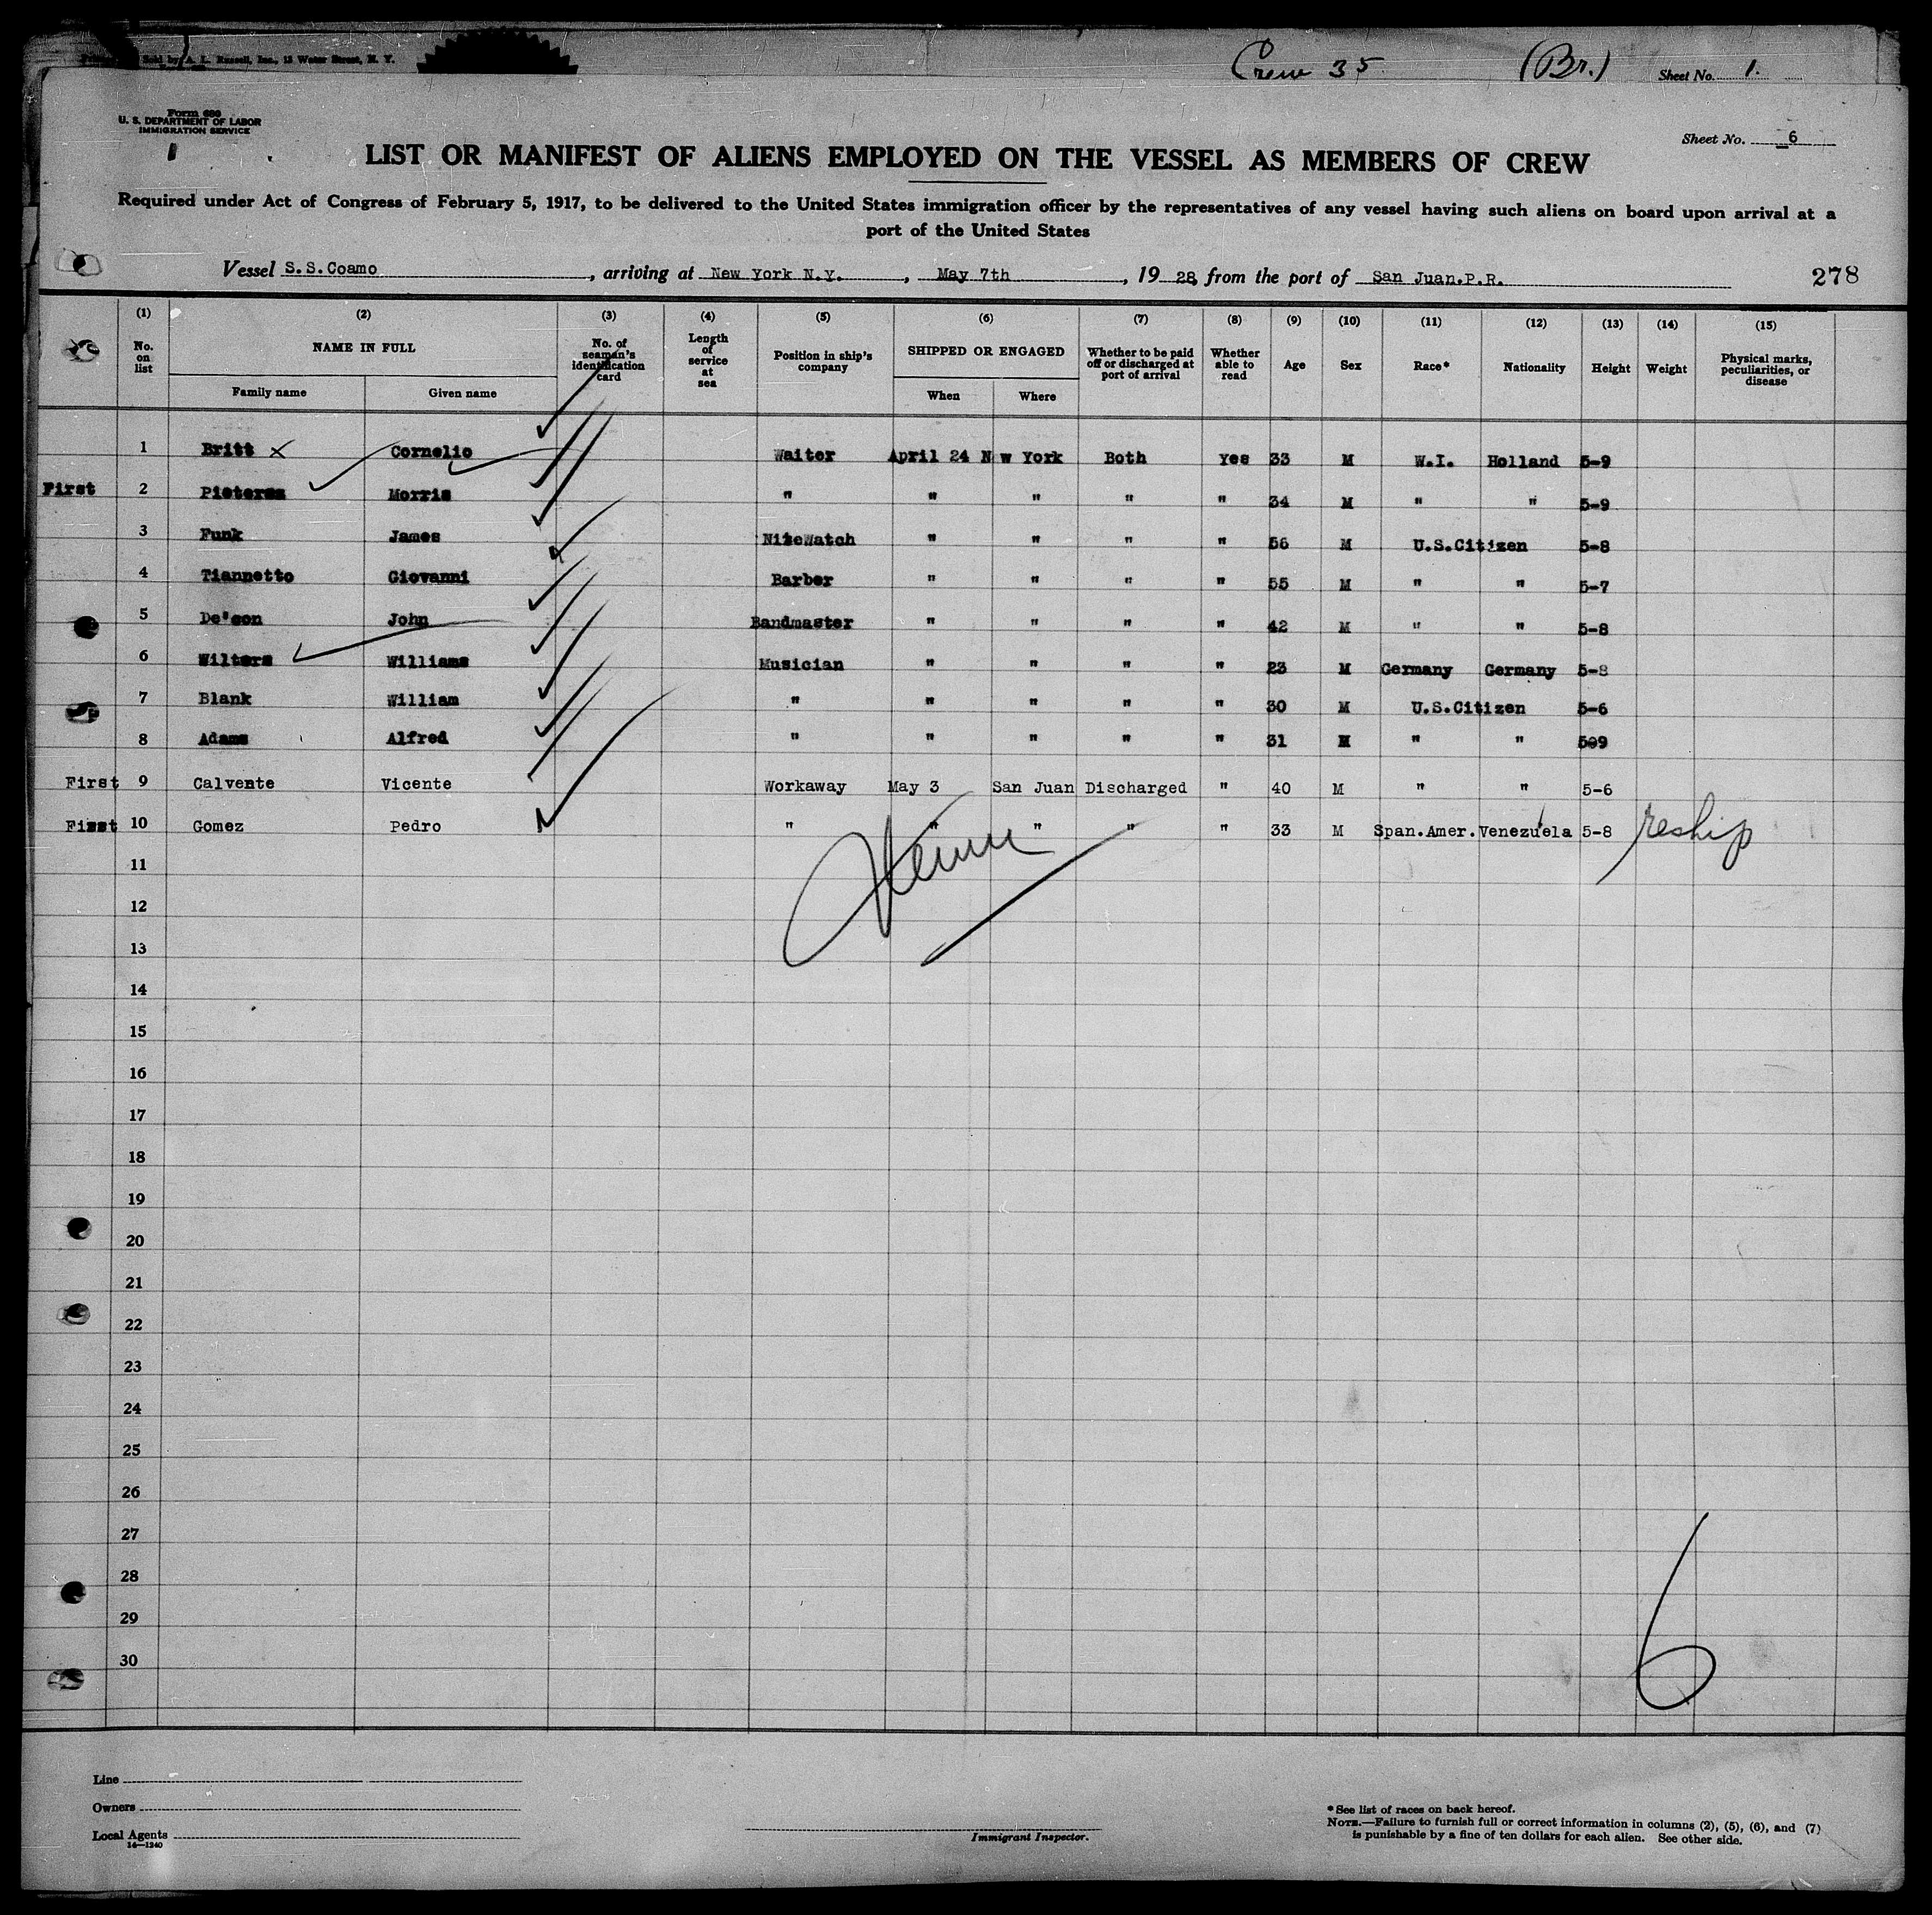 Sold by A. L. Russell, Inc., 15 Water Street, N. Y.
Crew 35 (Br.) Sheet No. 1.
Form 680
U. S. DEPARTMENT OF LABOR
IMMIGRATION SERVICE
Sheet No. 6
LIST OR MANIFEST OF ALIENS EMPLOYED ON THE VESSEL AS MEMBERS OF CREW
Required under Act of Congress of February 5, 1917, to be delivered to the United States immigration officer by the representatives of any vessel having such aliens on board upon arrival at a
port of the United States
Vessel S.S.Coamo, arriving at New York N.Y., May 7th, 1928, from the port of San Juan.P.R. 278
(1) (2) (3) (4) (5) (6) (7) (8) (9) (10) (11) (12) (13) (14) (15)
No. on list NAME IN FULL No. of seaman's identification card Length of service at sea Position in ship's company SHIPPED OR ENGAGED Whether to be paid off or discharged at port of arrival Whether able to read Age Sex Race* Nationality Height Weight Physical marks, peculiarities, or disease
Family name Given name When Where
1 Britt x Cornelio Waiter April 24 N w York Both Yes 33 M W.I. Holland 5-9
First 2 Pietersz Morris " " " " " 34 M " " 5-9
3 Funk James NiteWatch " " " " 56 M U.S.Citizen 5-8
4 Tiannetto Giovanni Barber " " " " 55 M " " 5-7
5 De'son John Bandmaster " " " " 42 M " " 5-8
6 Wilters Williams Musician " " " " 23 M Germany Germany 5-8
7 Blank William " " " " " 30 M U.S.Citizen 5-6
8 Adams Alfred " " " " " 31 M " " 509
First 9 Calvente Vicente Workaway May 3 San Juan Discharged " 40 M " " 5-6
First 10 Gomez Pedro " " " " " 33 M Span.Amer. Venezuela 5-8 reship
11
12
13
14
15
16
17
18
19
20
21
22
23
24
25
26
27
28
29
30
6
Line
Owners
Local Agents
14—1240
Immigrant Inspector.
*See list of races on back hereof.
NOTE.—Failure to furnish full or correct information in columns (2), (5), (6), and (7)
is punishable by a fine of ten dollars for each alien. See other side.